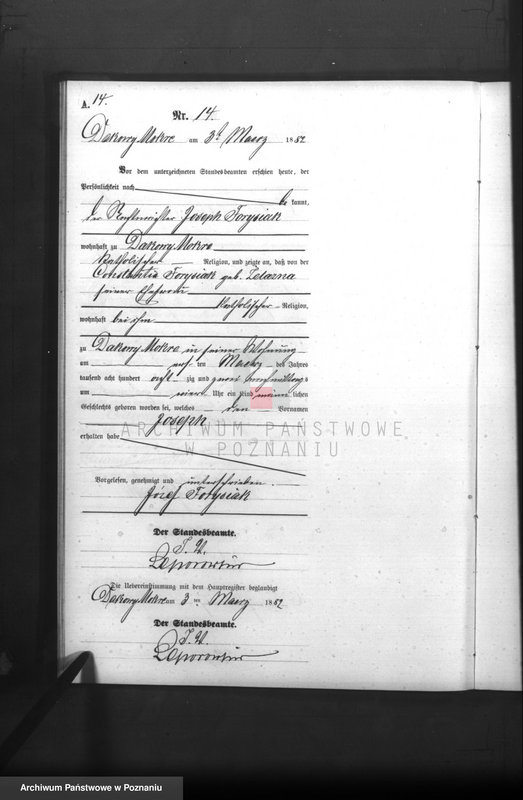 A. 14.
Nr. 14.
Dakowy Mokre am 3t Maerz 1882
Vor dem unterzeichneten Standesbeamten erschien heute, der
Persönlichkeit nach
be kannt,
der Joseph Forysiak
wohnhaft zu Dakowy Mokre
katholischer Religion, und zeigte an, daß von der
Constantia Forysiak geb. Zelazna
seiner Ehefrau
katholischer Religion,
wohnhaft bei ihm
zu Dakowy Mokre in seiner Wohnung
am ten Maerz des Jahres
tausend acht hundert acht zig und zwei Vormittags
um vier Uhr ein Kind männ lichen
Geschlechts geboren worden sei, welches den Vornamen
Joseph
erhalten habe
ARCHIWUM PAŃSTWOWE
W POZNANIU
Vorgelesen, genehmigt und unterschrieben.
Józef Forysiak
Der Standesbeamte.
J. V.
Die Uebereinstimmung mit dem Hauptregister beglaubigt
Dakowy Mokre am 3 ten Maerz 1882
Der Standesbeamte.
J. V.
Archiwum Państwowe w Poznaniu